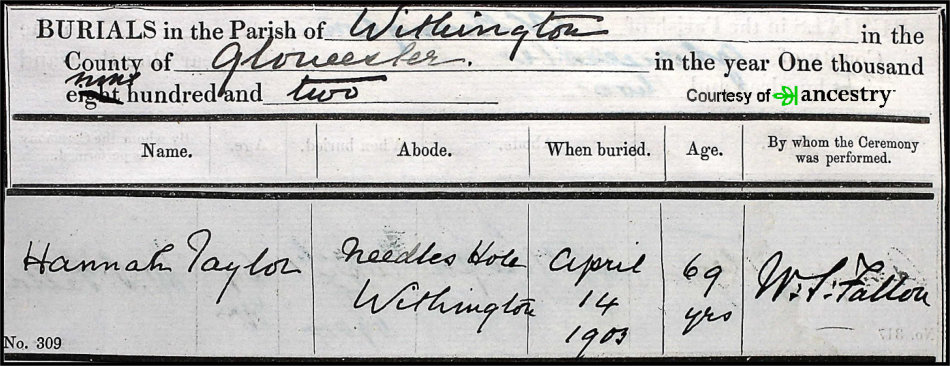 BURIALS in the Parish of Withington in the
County of Gloucester. in the year One thousand
nine
eight hundred and two
Courtesy of ancestry
Name. Abode. When buried. Age. By whom the Ceremony was performed.
Hannah Taylor Needles Hole April 69 W. S. Tatton
Withington 14 yrs
1903
No. 309